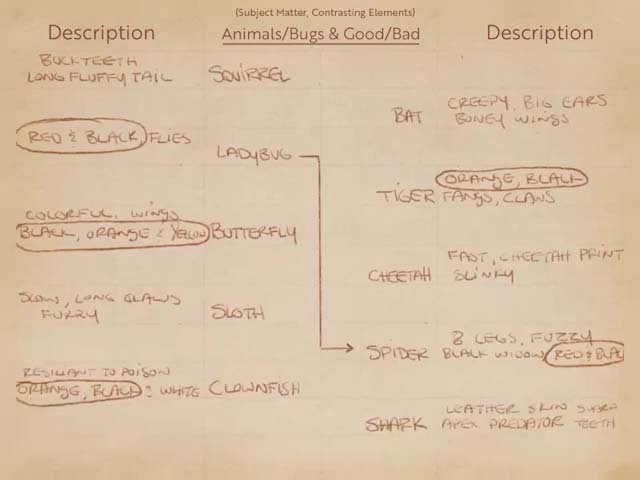 (Subject Matter, Contrasting Elements)
Description
Animals/Bugs & Good/Bad
Description
BUCKTEETH
LONG FLUFFY TAIL
SQUIRREL
RED & BLACK FLIES
LADYBUG
COLORFUL, WINGS
BLACK, ORANGE & YELLOW
BUTTERFLY
SLOW, LONG CLAWS
FURRY
SLOTH
RESILIANT TO POISON
ORANGE, BLACK & WHITE
CLOWNFISH
BAT
CREEPY, BIG EARS
BONEY WINGS
TIGER
ORANGE, BLACK
FANGS, CLAWS
CHEETAH
FAST, CHEETAH PRINT
SLINKY
SPIDER
8 LEGS, FUZZY
BLACK WIDOW RED & BLAC
SHARK
LEATHER SKIN SHARP
APEX PREDATOR TEETH